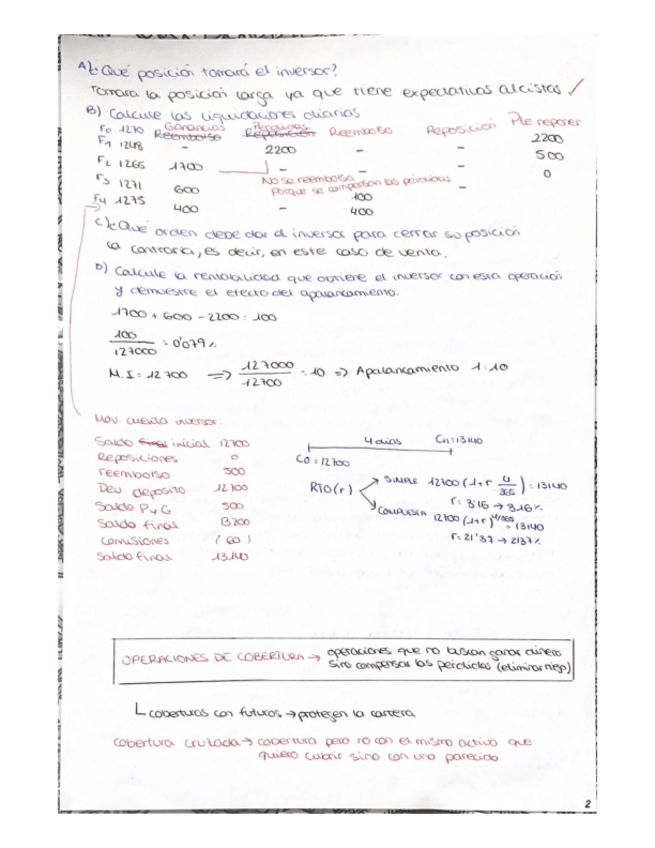 A) ¿Qué posición tomará el inversor?
Tomara la posición larga ya que tiene expectativas alcistas ✓
B) Calcule las liquidaciones diarias
Ganancias Perdidas Reembolso Reposición Pte reponer
Reembolso Reposición
F0 1270
F1 1248 - 2200 - - 2200
F2 1265 1700 - - - 500
F3 1271 600 No se reembolsa porque se compensan las pérdidas 100 - 0
F4 1275 400 - 400
C) ¿Qué orden debe dar el inversor para cerrar su posición
La contraria, es decir, en este caso de venta.
D) Calcule la rentabilidad que obtiene el inversor con esta operación
y demuestre el efecto del apalancamiento.
1700 + 600 - 2200 = 100
100
127000 = 0'079%
M.I = 12700 ⇒ 127000
12700 = 10 ⇒ Apalancamiento 1:10
Mov. cuenta inversor:
Saldo final inicial 12700
Reposiciones 0
reembolso 500
Dev deposito 12700
Saldo PyG 500
Saldo final 13200
Comisiones (60)
Saldo final 13.140
4 dias
C0 = 12700 Cn = 13140
RTO (r) SIMPLE 12700 (1+r 4/365) = 13140
r = 3'16 → 316%
COMPUESTA 12700 (1+r)^4/365 = 13140
r = 21'37 → 2137%
OPERACIONES DE COBERTURA → operaciones que no buscan ganar dinero
sino compensar las perdidas (eliminar riesgo)
└ coberturas con futuros → protegen la cartera
cobertura cruzada → cobertura pero no con el mismo activo que
quiero cubrir sino con uno parecido
2